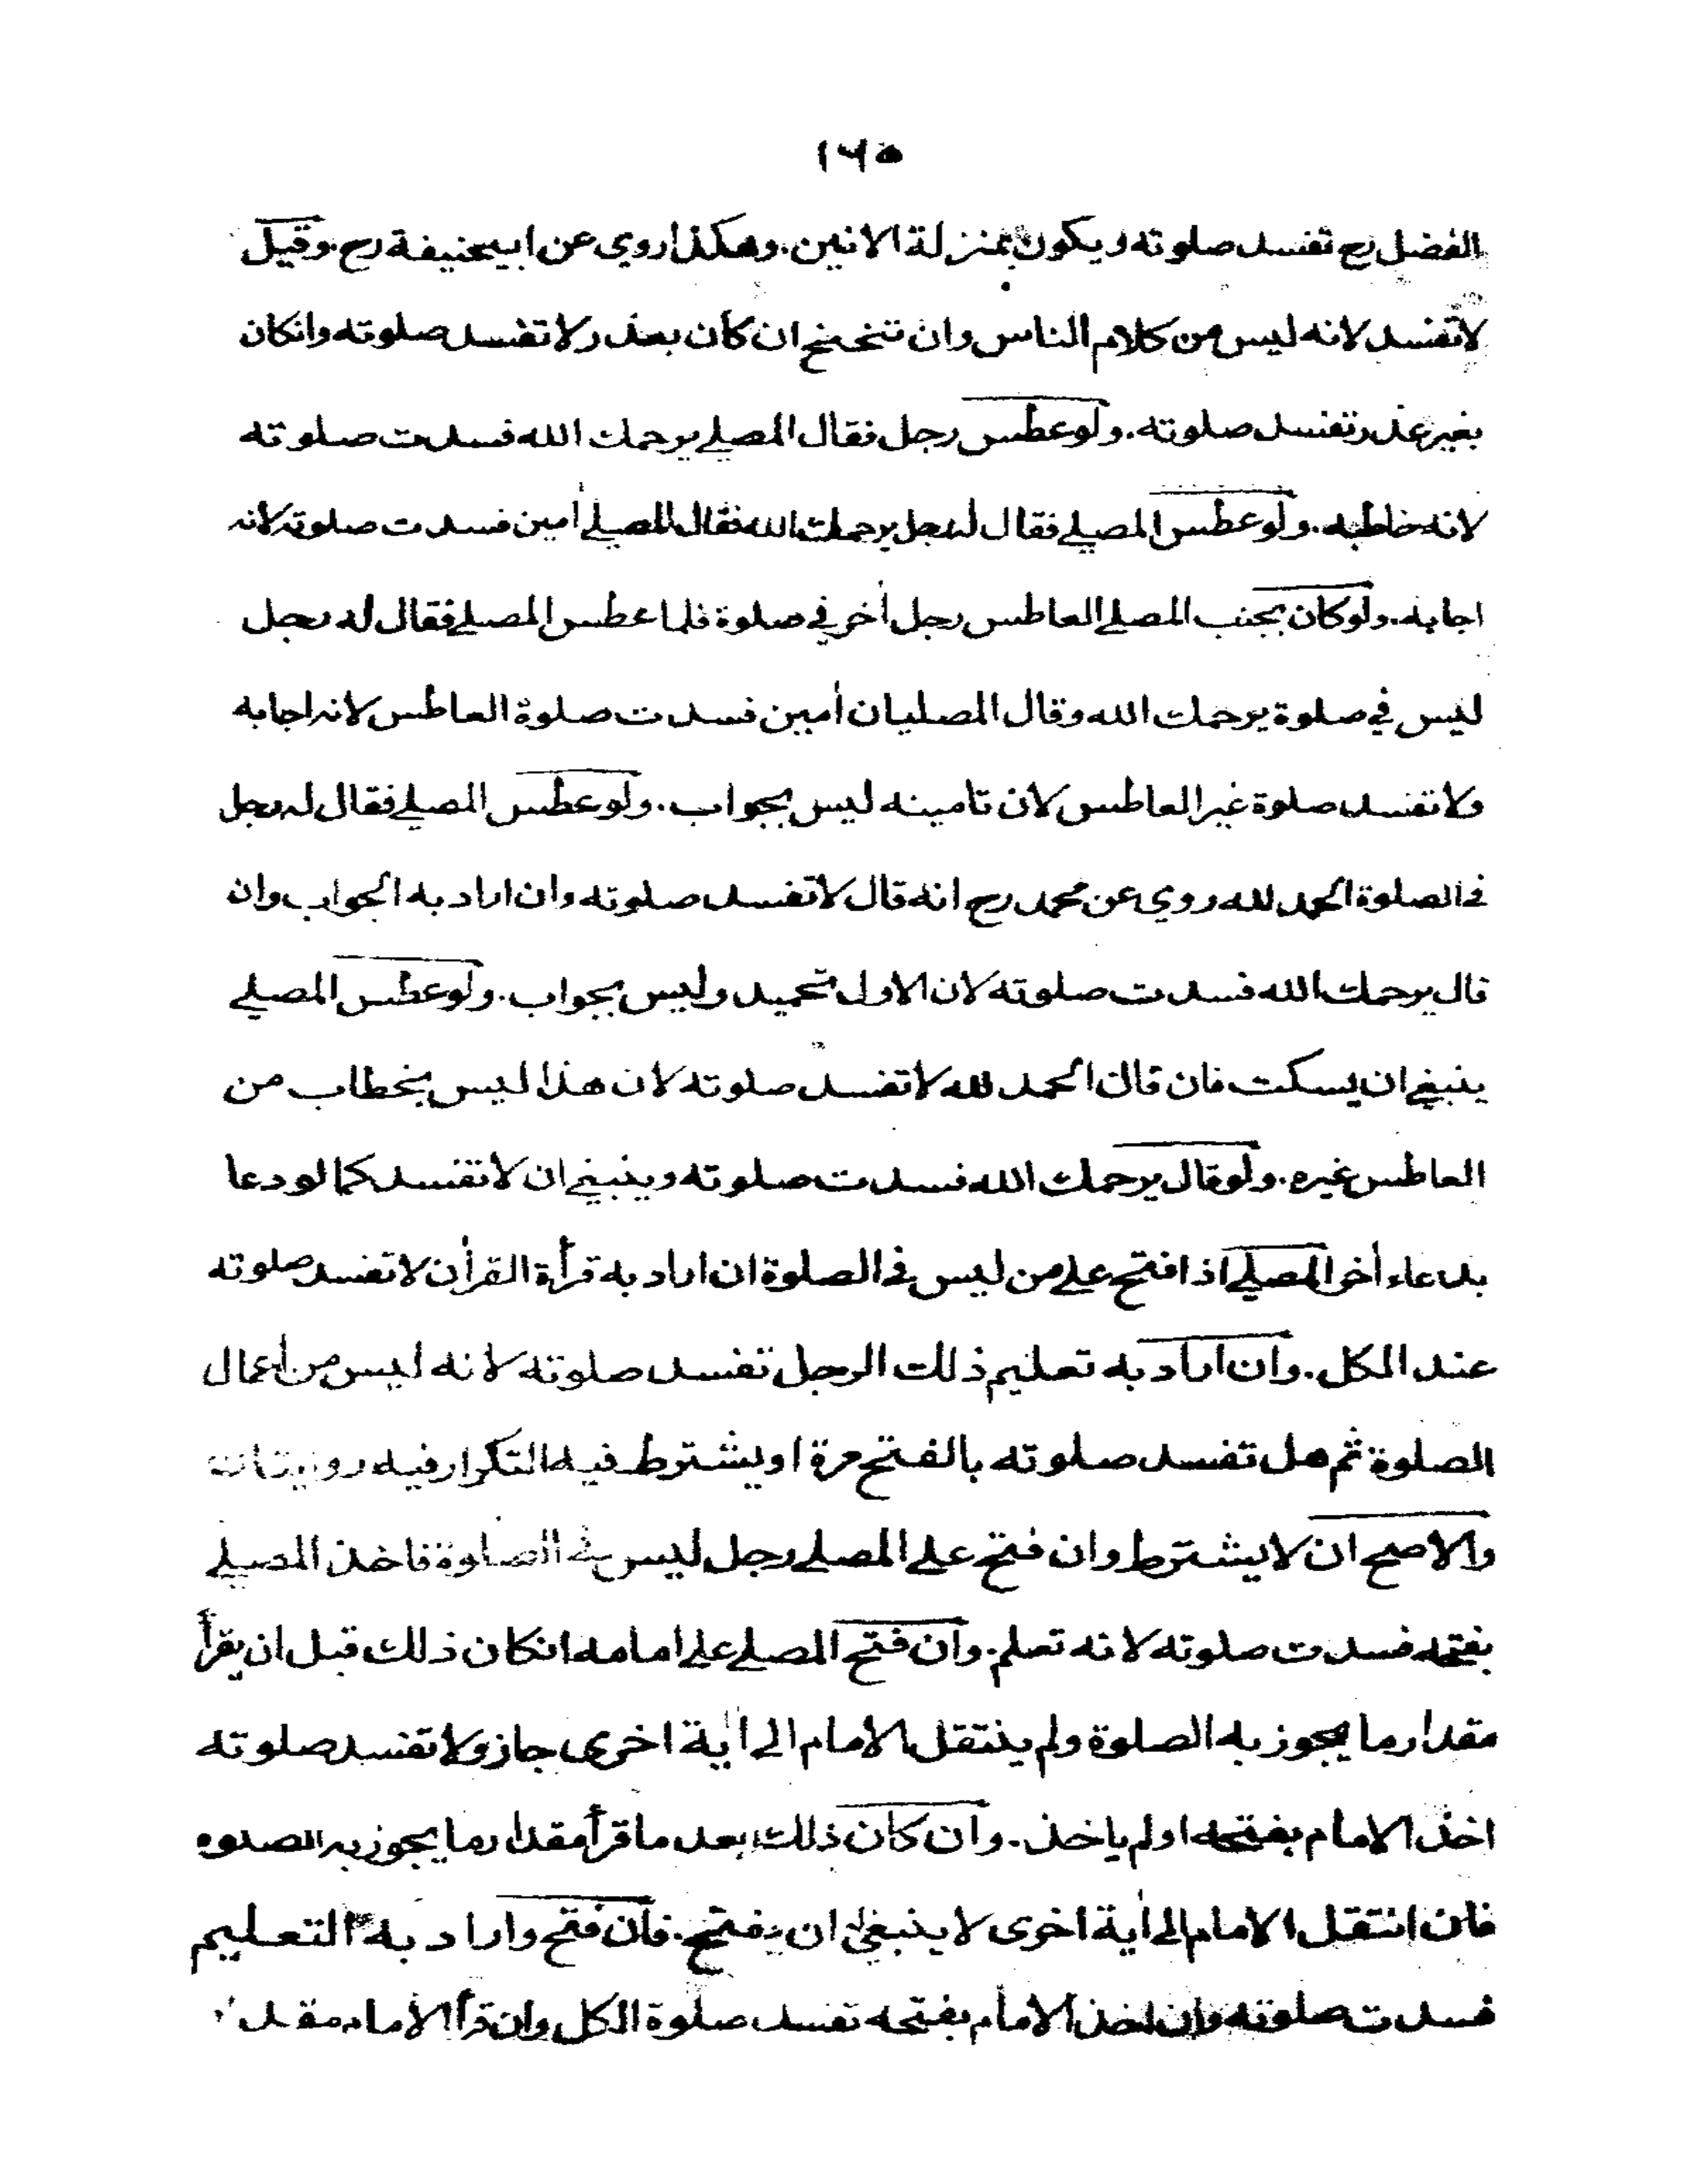 ١٦٥
الفضل رح تفسد صلوته ويكون بمنزلة الانين. وهكذا روي عن ابيحنيفة رح. وقيل
لا تفسد لانه ليس من كلام الناس وان تنحنح ان كان بعذر لا تفسد صلوته وانكان
بغير عذر تفسد صلوته. ولو عطس رجل فقال المصلي يرحمك الله فسدت صلوته
لانه خاطبه. ولو عطس المصلي فقال له رجل يرحمك الله فقال المصلي أمين فسدت صلوته لانه
اجابه. ولو كان بجنب المصلي العاطس رجل أخر في صلوة فلما عطس المصلي فقال له رجل
ليس في صلوة يرحمك الله وقال المصليان أمين فسدت صلوة العاطس لانه اجابه
ولا تفسد صلوة غير العاطس لان تامينه ليس بجواب. ولو عطس المصلي فقال له رجل
في الصلوة الحمد لله روي عن محمد رح انه قال لا تفسد صلوته وان اراد به الجواب وان
قال يرحمك الله فسدت صلوته لان الاول تحميد وليس بجواب. ولو عطس المصلي
ينبغي ان يسكت فان قال الحمد لله لا تفسد صلوته لان هذا ليس بخطاب من
العاطس غيره. ولو قال يرحمك الله فسدت صلوته وينبغي ان لا تفسد كما لو دعا
بدعاء أخر المصلي اذا فتح على من ليس في الصلوة ان اراد به قرأة القرأن لا تفسد صلوته
عند الكل. وان اراد به تعليم ذلك الرجل تفسد صلوته لانه ليس من أعمال
الصلوة ثم هل تفسد صلوته بالفتح مرة او يشترط فيه التكرار فيه روايتان
والاصح ان لا يشترط وان فتح على المصلي رجل ليس في الصلوة فاخذ المصلي
بفتحه فسدت صلوته لانه تعلم. وان فتح المصلي على امامه انكان ذلك قبل ان يقرأ
مقدار ما يجوز به الصلوة ولم ينتقل الامام الى أية اخرى جاز ولا تفسد صلوته
اخذ الامام بفتحه او لم ياخذ. وان كان ذلك بعد ما قرأ مقدار ما يجوز به الصلوة
فان انتقل الامام الى أية اخرى لا ينبغي ان يفتح. فان فتح واراد به التعليم
فسدت صلوته وان اخذ الامام بفتحه تفسد صلوة الكل وان قرأ الامام مقدا